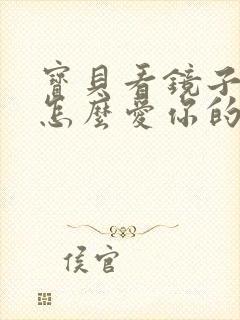 寶貝看鏡子
怎麼愛你的
侯官